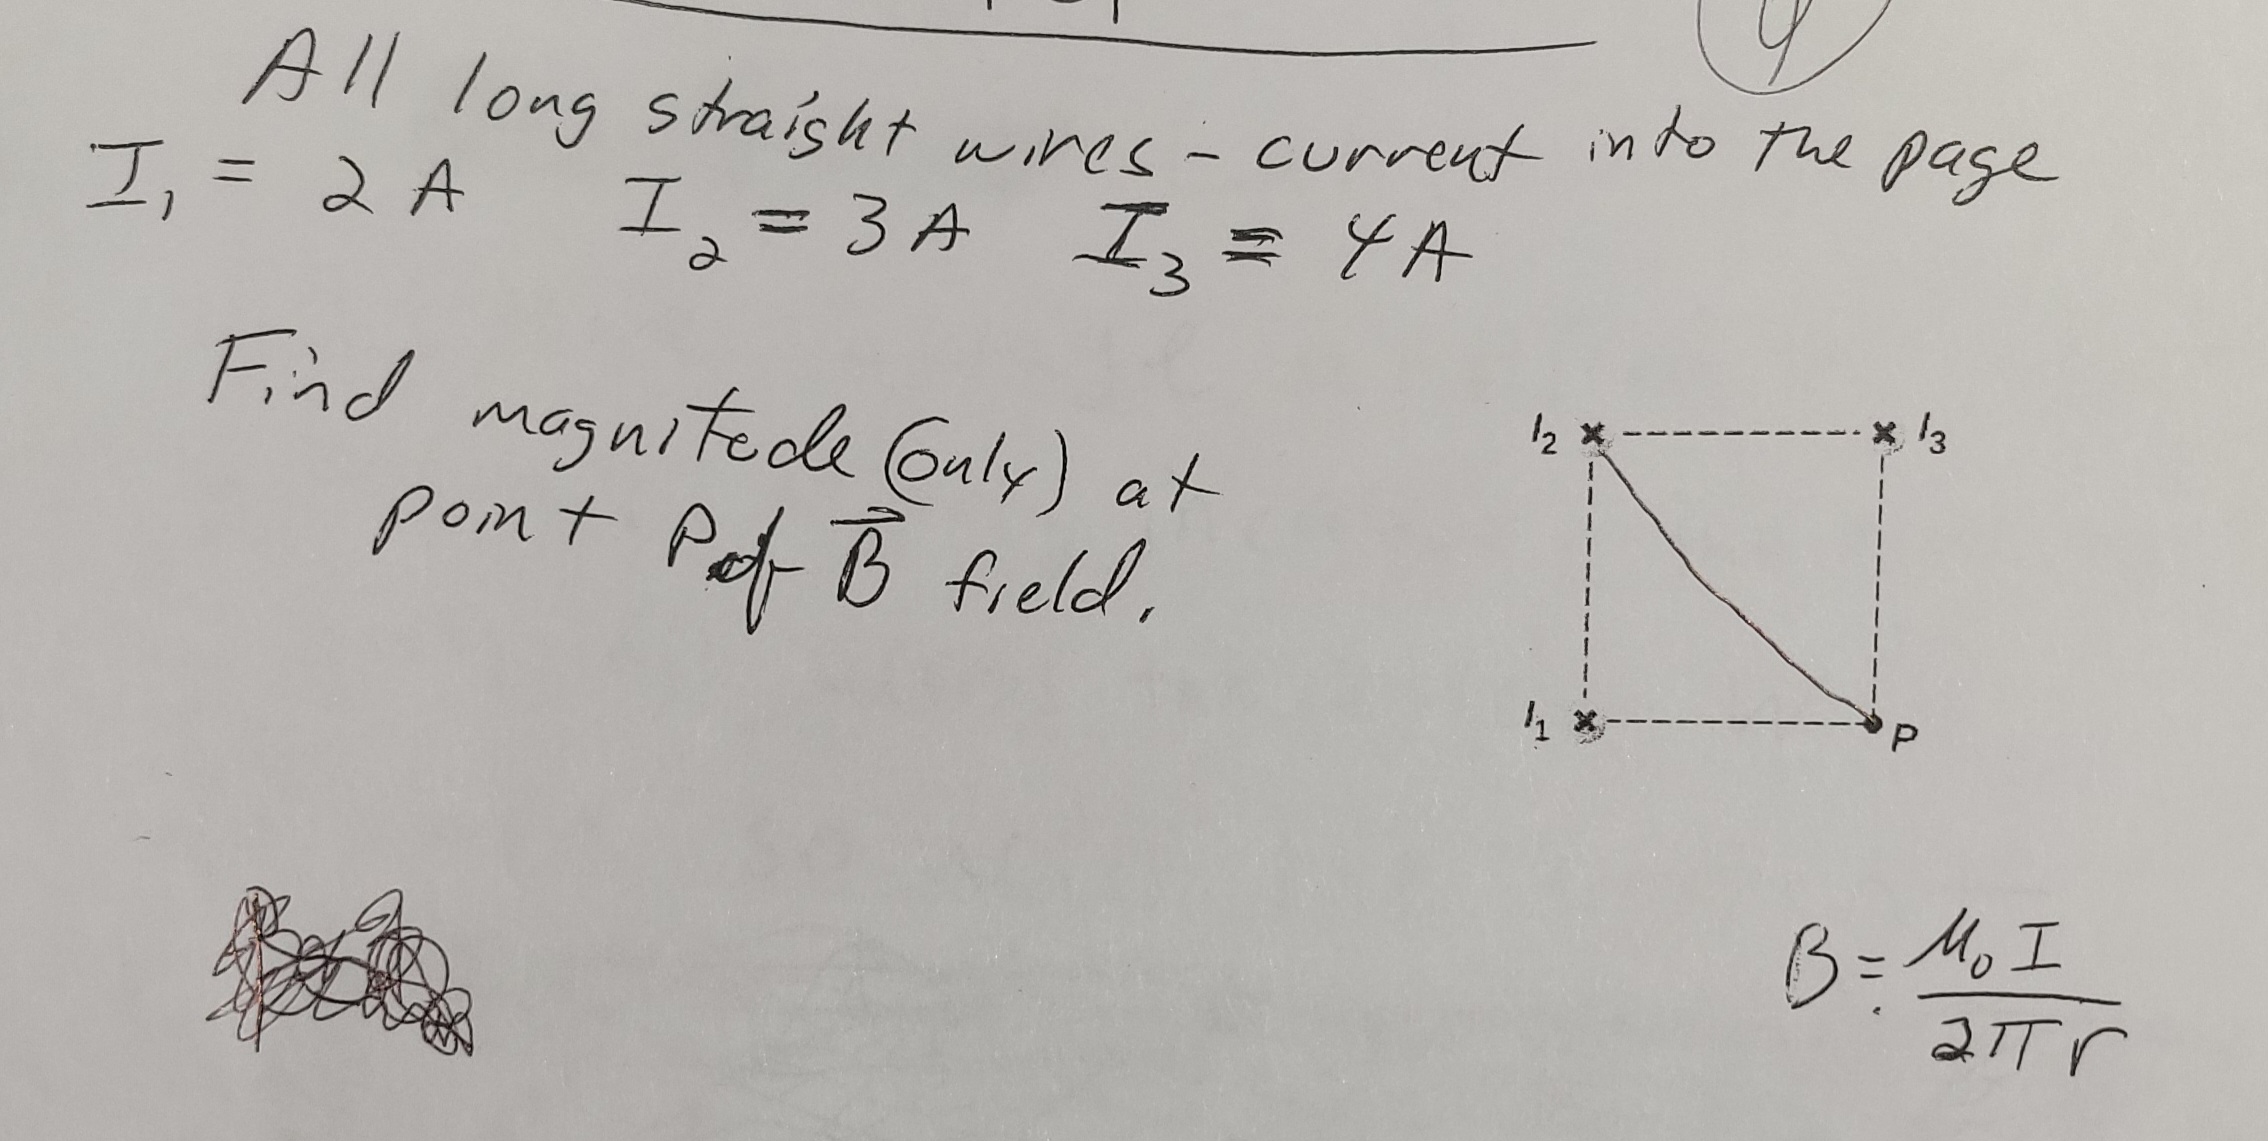 4
All long straight wires - current into the page
I₁ = 2 A I₂ = 3 A I₃ = 4 A
Find magnitede (only) at
point P of B⃗ field.
I₂ × × I₃
I₁ × P
B = μ₀ I / 2π r